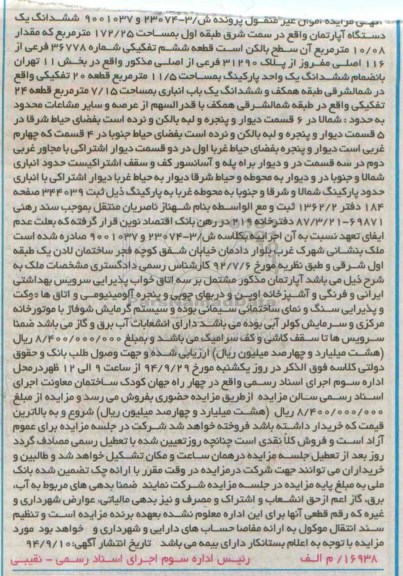 آگهی مزایده اموال غیر منقول پرونده ش/۳-۲۳۰۷۴ و ۹۰۰۱۰۳۷ ششدانگ یک
دستگاه آپارتمان واقع در سمت شرق طبقه اول بمساحت ۱۷۲/۲۵ مترمربع که مقدار
۱۰/۰۸ مترمربع آن سطح بالکن است قطعه ششم تفکیکی شماره ۳۶۷۷۸ فرعی از
۱۱۶ اصلی مفروز از پلاک ۳۱۲۹۰ فرعی از اصلی مذکور واقع در بخش ۱۱ تهران
بانضمام ششدانگ یک واحد پارکینگ بمساحت ۱۱/۵ مترمربع قطعه ۲۰ تفکیکی واقع
در شمالشرقی طبقه همکف و ششدانگ یک باب انباری بمساحت ۷/۱۵ مترمربع قطعه ۲۴
تفکیکی واقع در طبقه شمالشرقی همکف با قدرالسهم از عرصه و سایر مشاعات محدود
به حدود : شمالا در ۶ قسمت دیوار و پنجره و لبه بالکن و نرده است بفضای حیاط شرقا در
۵ قسمت دیوار و پنجره و لبه بالکن و نرده است بفضای حیاط جنوبا در ۴ قسمت که چهارم
غربی است دیوار و پنجره بفضای حیاط غربا اول در دو قسمت دیوار اشتراکی با مجاور غربی
دوم در سه قسمت در و دیوار براه پله و آسانسور کف و سقف اشتراکیست حدود انباری
شمالا و جنوبا در و دیوار به محوطه و حیاط شرقا دیوار به حیاط غربا دیوار اشتراکی با انباری
حدود پارکینگ شمالا و شرقا و جنوبا به محوطه غربا به پارکینگ ذیل ثبت ۳۴۴۰۳۹ صفحه
۱۸۴ دفتر ۱۳۶۲/۲ ثبت و مع الواسطه بنام شهناز ناصریان منتقل بموجب سند رهنی
۶۹۸۷۱-۸۷/۳/۲۱ دفترخانه ۲۱۹ در رهن بانک اقتصاد نوین قرار گرفته که بعلت عدم
ایفای تعهد نسبت به آن اجرائیه بکلاسه ش/۳-۲۳۰۷۴ و ۹۰۰۱۰۳۷ صادره شده است
ملک بنشانی شهرک غرب بلوار دادمان خیابان شفق کوچه فجر ساختمان لادن یک طبقه
اول شرقی و طبق نظریه مورخ ۹۲/۷/۶ کارشناس رسمی دادگستری مشخصات ملک به
شرح ذیل می باشد آپارتمان مذکور مشتمل بر سه اتاق خواب پذیرایی سرویس بهداشتی
ایرانی و فرنگی و آشپزخانه اوپن و دربهای چوبی و پنجره آلومینیومی و اتاق ها موکت
و پذیرایی سنگ و نمای ساختمانی سیمانی بوده و سیستم گرمایش شوفاژ با موتورخانه
مرکزی و سرمایش کولر آبی بوده می باشد دارای انشعابات آب برق و گاز می باشد ضمنا
سرویس ها تا سقف کاشی و کف سرامیک می باشد و بمبلغ ۸/۴۰۰/۰۰۰/۰۰۰ ریال
(هشت میلیارد و چهارصد میلیون ریال) ارزیابی شده و جهت وصول طلب بانک و حقوق
دولتی کلاسه فوق الذکر در روز یکشنبه مورخ ۹۴/۹/۲۹ از ساعت ۹ الی ۱۲ ظهردرمحل
اداره سوم اجرای اسناد رسمی واقع در چهار راه جهان کودک ساختمان معاونت اجرای
اسناد رسمی سالن مزایده ازطریق مزایده حضوری بفروش می رسد و مزایده از مبلغ
۸/۴۰۰/۰۰۰/۰۰۰ ریال (هشت میلیارد و چهارصد میلیون ریال) شروع و به بالاترین
قیمت که خریدار داشته باشد فروخته خواهد شد شرکت در جلسه مزایده برای عموم
آزاد است و فروش کلاً نقدی است چنانچه روزتعیین شده با تعطیل رسمی مصادف گردد
روز بعد از تعطیل جلسه مزایده درهمان ساعت و مکان تشکیل خواهد شد و طالبین و
خریداران می توانند جهت شرکت درمزایده در وقت مقرر با ارائه چک تضمین شده بانک
ملی به مبلغ پایه مزایده در جلسه مزایده شرکت نمایند ضمنا بدهی های مربوط به آب،
برق، گاز اعم ازحق انشعاب و اشتراک و مصرف و نیز بدهی مالیاتی، عوارض شهرداری و
غیره که رقم قطعی آنها برای این اداره معلوم نشده بعهده برنده مزایده است و تنظیم
سند انتقال موکول به ارائه مفاصا حساب های دارایی و شهرداری و خواهد بود مورد
مزایده با توجه به اعلام بستانکار دارای بیمه می باشد تاریخ انتشار آگهی: ۹۴/۹/۱۰
۱۶۹۳۸/ م الف رئیس اداره سوم اجرای اسناد رسمی - نقیبی